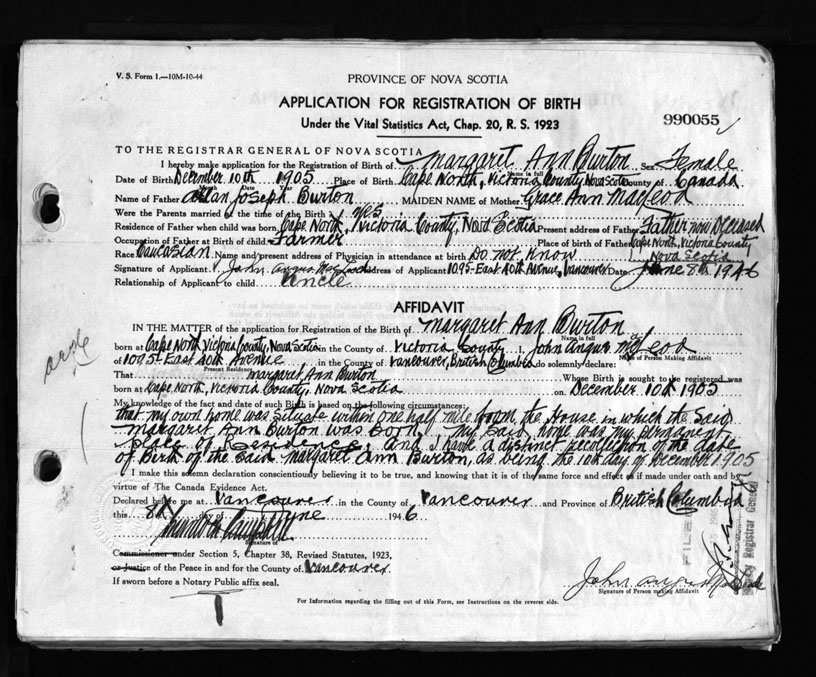 V. S. Form 1.—10M-10-44
PROVINCE OF NOVA SCOTIA
APPLICATION FOR REGISTRATION OF BIRTH
Under the Vital Statistics Act, Chap. 20, R. S. 1923
990055
TO THE REGISTRAR GENERAL OF NOVA SCOTIA
I hereby make application for the Registration of Birth of Margaret Ann Burton Sex Female
Name in full
Date of Birth December 10th 1905 Place of Birth Cape North, Victoria County Nova Scotia County of Canada
Month Date Year
Name of Father Allan Joseph Burton MAIDEN NAME of Mother Grace Ann MacLeod
Were the Parents married at the time of the Birth Yes
Residence of Father when child was born Cape North, Victoria County, Nova Scotia Present address of Father Father now Deceased
Occupation of Father at Birth of child Farmer Place of birth of Father Cape North, Victoria County
Nova Scotia
Race Caucasian Name and present address of Physician in attendance at birth Do not Know
Signature of Applicant John Angus MacLeod Address of Applicant 1095-East 40th Avenue, Vancouver Date June 8th 1946
Relationship of Applicant to child Uncle
AFFIDAVIT
IN THE MATTER of the application for Registration of the Birth of Margaret Ann Burton
Name in full
born at Cape North, Victoria County, Nova Scotia in the County of Victoria County I, John Angus McLeod
Name of Person Making Affidavit
of 1095 East 40th Avenue in the County of Vancouver, British Columbia do solemnly declare:
Present Residence
That Margaret Ann Burton Whose Birth is sought to the registered was
born at Cape North, Victoria County, Nova Scotia on December 10th 1905
My knowledge of the fact and date of such Birth is based on the following circumstances:
that my own home was situate within one half mile from the House in which the Said
Margaret Ann Burton was Born. My Said home was my permanent
place of Residence; and I have a distinct recollection of the date
of Birth of the said Margaret Ann Burton, as being the 10th day of December 1905
I make this solemn declaration conscientiously believing it to be true, and knowing that it is of the same force and effect as if made under oath and by
virtue of The Canada Evidence Act.
Declared before me at Vancouver in the County of Vancouver and Province of British Columbia
this 8th day of June 1946
Signature of
Commissioner under Section 5, Chapter 38, Revised Statutes, 1923,
or Justice of the Peace in and for the County of Vancouver
If sworn before a Notary Public affix seal.
John Angus McLeod
Signature of Person making Affidavit
For Information regarding the filling out of this Form, see Instructions on the reverse side.
FILED
Deputy Registrar General